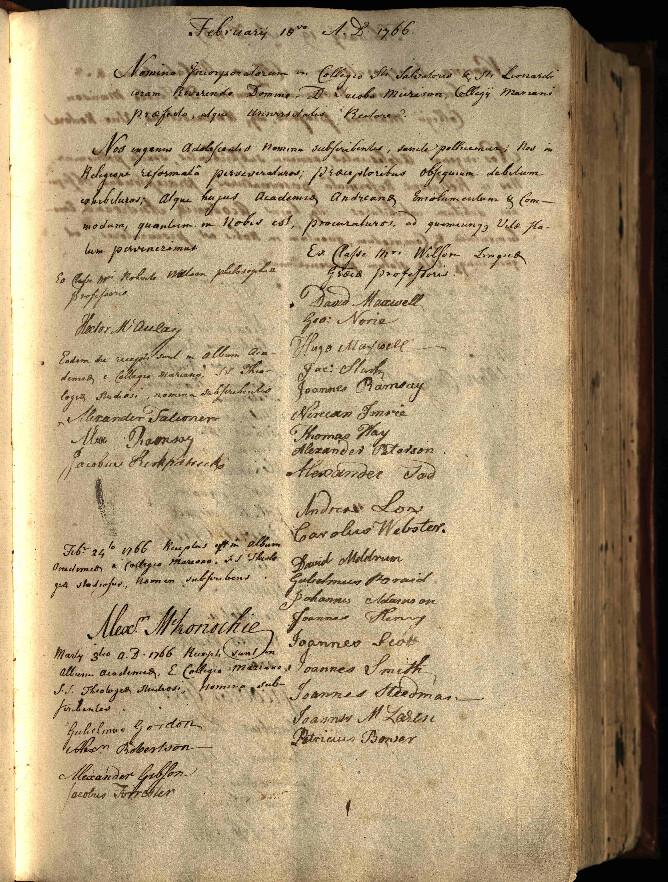 February 18vo A.D. 1766
Nomina Incorporatorum in Collegio Sti Salvatoris & Sti Leonardi
coram Reverendo Domino D. Jacobo Murison, Collegij Mariani
Præfecto, atque Universitatis Rectore.
Nos ingenui Adolescentes nomina subscribentes, sancte pollicemur; Nos in
Religione reformata perseveraturos; præceptoribus obsequium debitum
exhibituros; Atque hujus Academiæ Andreanæ Emolumentum & Com-
modum, quantum in Nobis est, procuraturos, ad quemcunq; Vitæ sta-
tum pervenerimus
Ex Classe Mri Roberti Watson philosophiæ
professoris
Hector McAulay
Eodem die recepti sunt in album Aca-
demiæ, e Collegio Mariano, S.S. Theo-
logiæ studiosi, nomina subscribentes
Alexander
Alexr
Jacobus Kirkpatrick
Febrii 24to 1766 Receptus est in album
Academiæ e Collegio Mariano, S.S. Theolo-
giæ studiosus, nomen subscribens
Alexr McKonochie
Martij 3tio A.D. 1766 Recepti sunt in
Album academiæ, E Collegio Mariano
S.S. Theologiæ studiosi, nomina sub-
scribentes
Gulielmus Gordon
Robertson
Alexander Gibson
Jacobus Forrester
Ex Classe Mri Wilson Linguæ
Græcæ professoris
David Maxwell
Geo: Norie
Hugo Maxwell
Jac:
Joannes Ramsay
Ninian Imrie
Thomas Hay
Alexander Paterson
Alexander Tod
Andreas
Carolus Webster.
David Meldrum
Gulielmus Braid
Johannes Adamson
Joannes Henry
Joannes Scott
Joannes Smith
Joannes Steedman
Joannes McLaren
Patricius Bowar